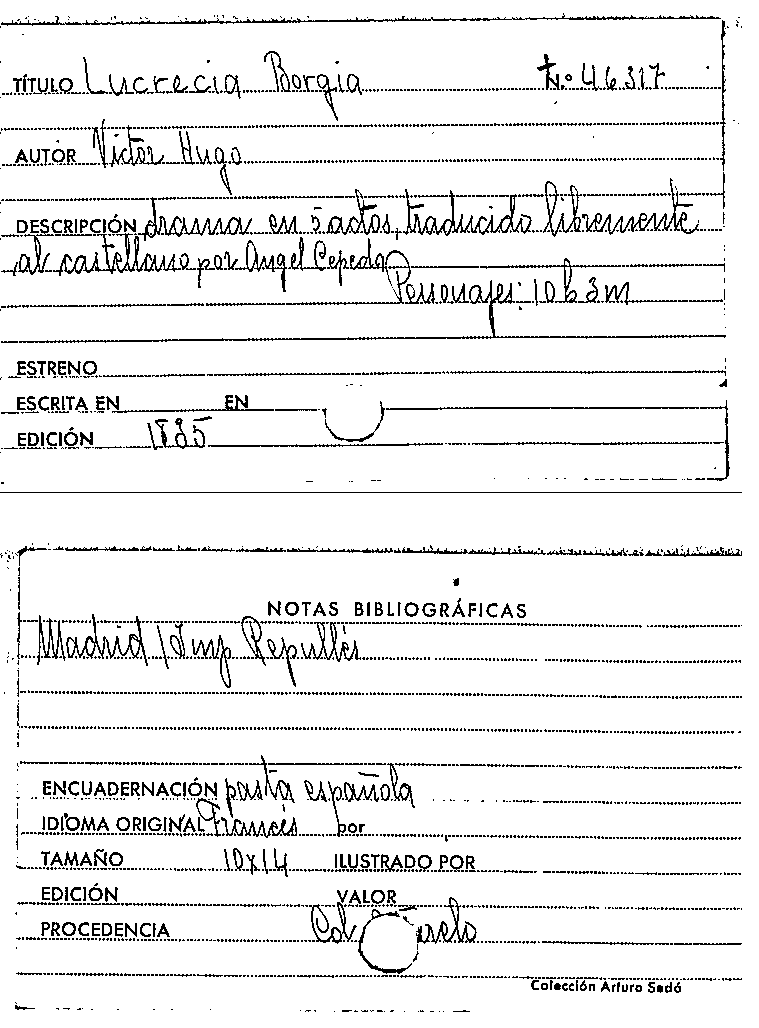 TÍTULO Lucrecia Borgia N.º 46317
AUTOR Víctor Hugo
DESCRIPCIÓN drama en 5 actos, traducido libremente
al castellano por Angel Cepeda
Personajes: 10 h 3 m
ESTRENO
ESCRITA EN EN
EDICIÓN 1835
NOTAS BIBLIOGRÁFICAS
Madrid / Imp Repullés
ENCUADERNACIÓN pasta española
IDIOMA ORIGINAL Francés por
TAMAÑO 10x14 ILUSTRADO POR
EDICIÓN VALOR
PROCEDENCIA Col
Colección Arturo Sedó